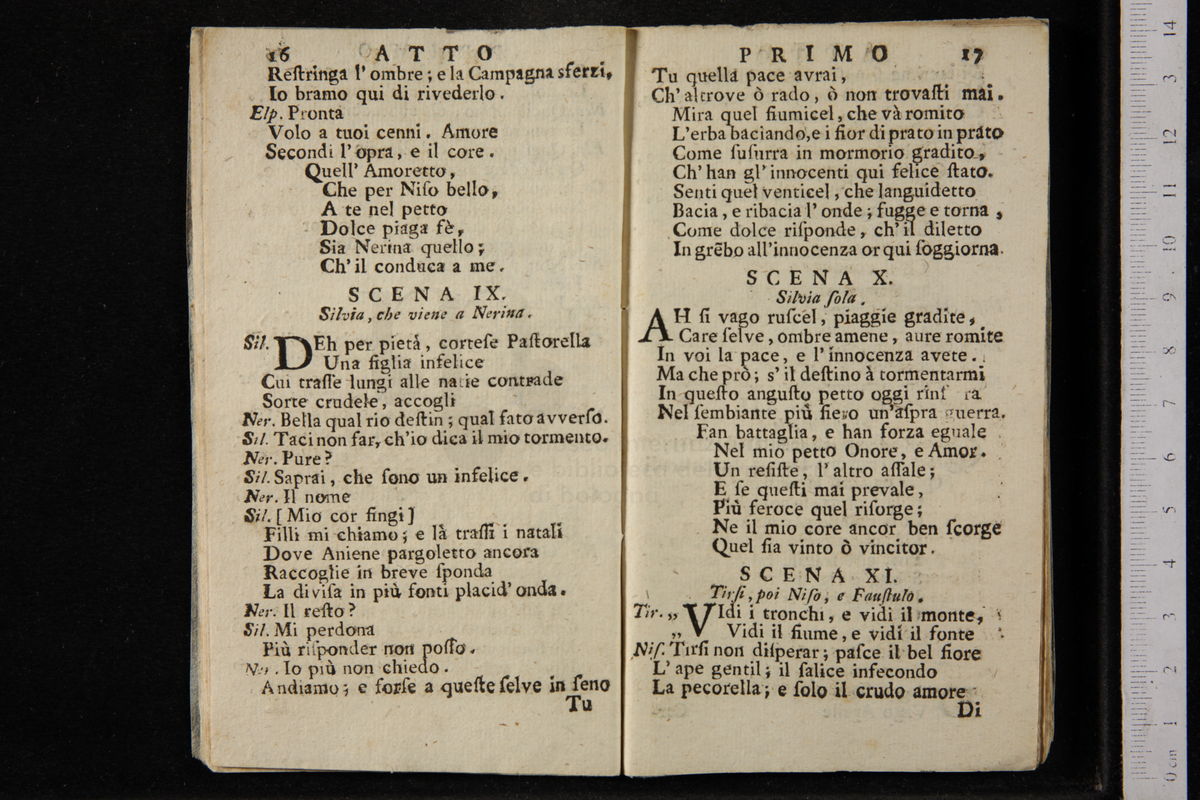 16 ATTO
Reſtringa l' ombre; e la Campagna sferzi,
Io bramo qui di rivederlo.
Elp. Pronta
Volo a tuoi cenni. Amore
Secondi l' opra, e il core.
Quell' Amoretto,
Che per Niſo bello,
A te nel petto
Dolce piaga fè,
Sia Nerina quello;
Ch' il conduca a me.
SCENA IX.
Silvia, che viene a Nerina.
Sil. DEh per pietà, corteſe Paſtorella
Una figlia infelice
Cui traſſe lungi alle natie contrade
Sorte crudele, accogli
Ner. Bella qual rio deſtin; qual fato avverſo.
Sil. Taci non far, ch'io dica il mio tormento.
Ner. Pure?
Sil. Saprai, che ſono un infelice.
Ner. Il nome
Sil. [Mio cor fingi]
Filli mi chiamo; e là traſſi i natali
Dove Aniene pargoletto ancora
Raccoglie in breve ſponda
La diviſa in più fonti placid' onda.
Ner. Il reſto?
Sil. Mi perdona
Più riſponder non poſſo.
Ner. Io più non chiedo.
Andiamo; e forſe a queſte ſelve in ſeno
Tu
PRIMO 17
Tu quella pace avrai,
Ch' altrove ò rado, ò non trovaſti mai.
Mira quel fiumicel, che và romito
L'erba baciando, e i fior di prato in prato
Come ſuſurra in mormorio gradito,
Ch' han gl' innocenti qui felice ſtato.
Senti quel venticel, che languidetto
Bacia, e ribacia l' onde; fugge e torna,
Come dolce riſponde, ch' il diletto
In grẽbo all'innocenza or qui ſoggiorna.
SCENA X.
Silvia ſola.
AH ſi vago ruſcel, piaggie gradite,
Care ſelve, ombre amene, aure romite
In voi la pace, e l' innocenza avete.
Ma che prò; s' il deſtino à tormentarmi
In queſto anguſto petto oggi
Nel ſembiante più fiero un'aſpra guerra.
Fan battaglia, e han forza eguale
Nel mio petto Onore, e Amor.
Un reſiſte, l' altro aſſale;
E ſe queſti mai prevale,
Più feroce quel riſorge;
Ne il mio core ancor ben ſcorge
Quel ſia vinto ò vincitor.
SCENA XI.
Tirſi, poi Niſo, e Fauſtulo.
Tir. „ VIdi i tronchi, e vidi il monte,
„ Vidi il fiume, e vidi il fonte
Niſ. Tirſi non diſperar; paſce il bel fiore
L' ape gentil; il ſalice infecondo
La pecorella; e ſolo il crudo amore
Di